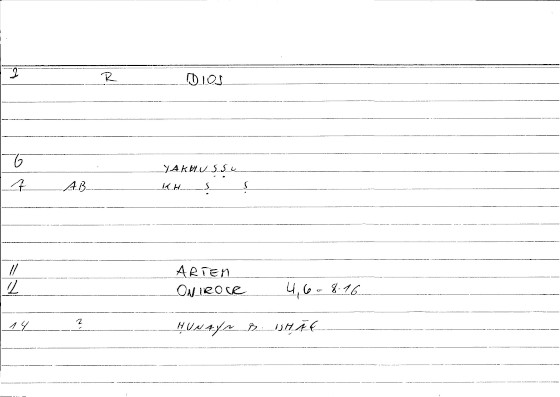 1 R DIOS
6 YAKHUṢṢU
7 AB KH Ṣ Ṣ
11 ARTEM
12 ONIROCR 4,6 - 8.16
14 ? ḤUNAYN B. ISḤĀḲ